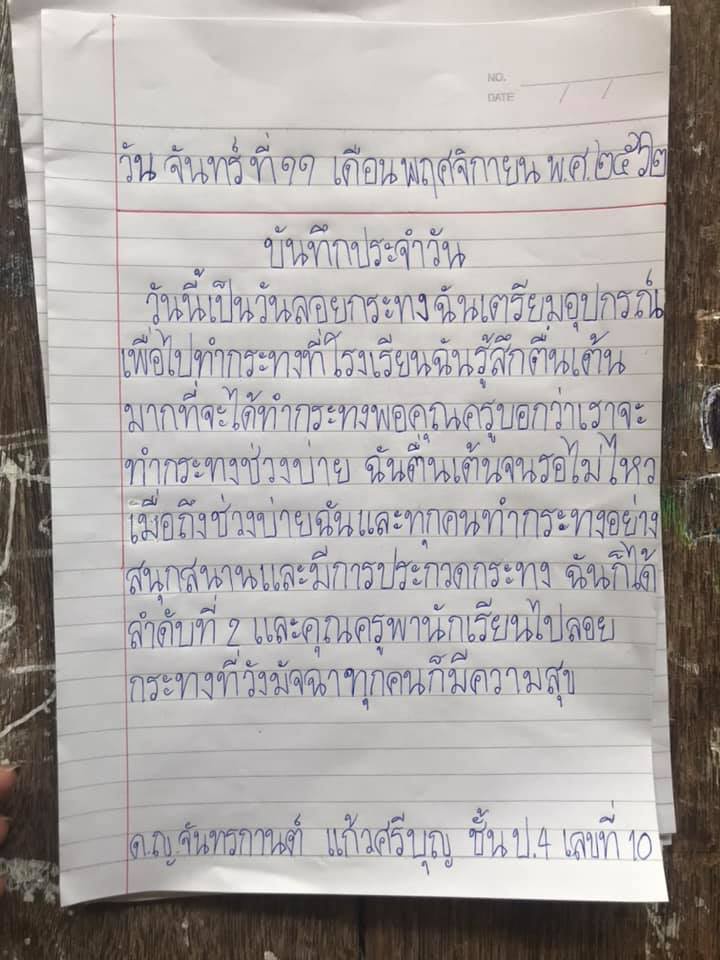 NO.
DATE / /
วัน จันทร์ ที่ ๑๑ เดือน พฤศจิกายน พ.ศ.๒๕๖๒
บันทึกประจำวัน
วันนี้เป็นวันลอยกระทง ฉันเตรียมอุปกรณ์
เพื่อไปทำกระทงที่โรงเรียนฉันรู้สึกตื่นเต้น
มากที่จะได้ทำกระทงพอคุณครูบอกว่าเราจะ
ทำกระทงช่วงบ่าย ฉันตื่นเต้นจนรอไม่ไหว
เมื่อถึงช่วงบ่ายฉันและทุกคนทำกระทงอย่าง
สนุกสนานและมีการประกวดกระทง ฉันก็ได้
ลำดับที่ 2 และคุณครูพานักเรียนไปลอย
กระทงที่วังมัจฉาทุกคนก็มีความสุข
ด.ญ.จันทรกานต์ แก้วศรีบุญ ชั้น ป.4 เลขที่ 10